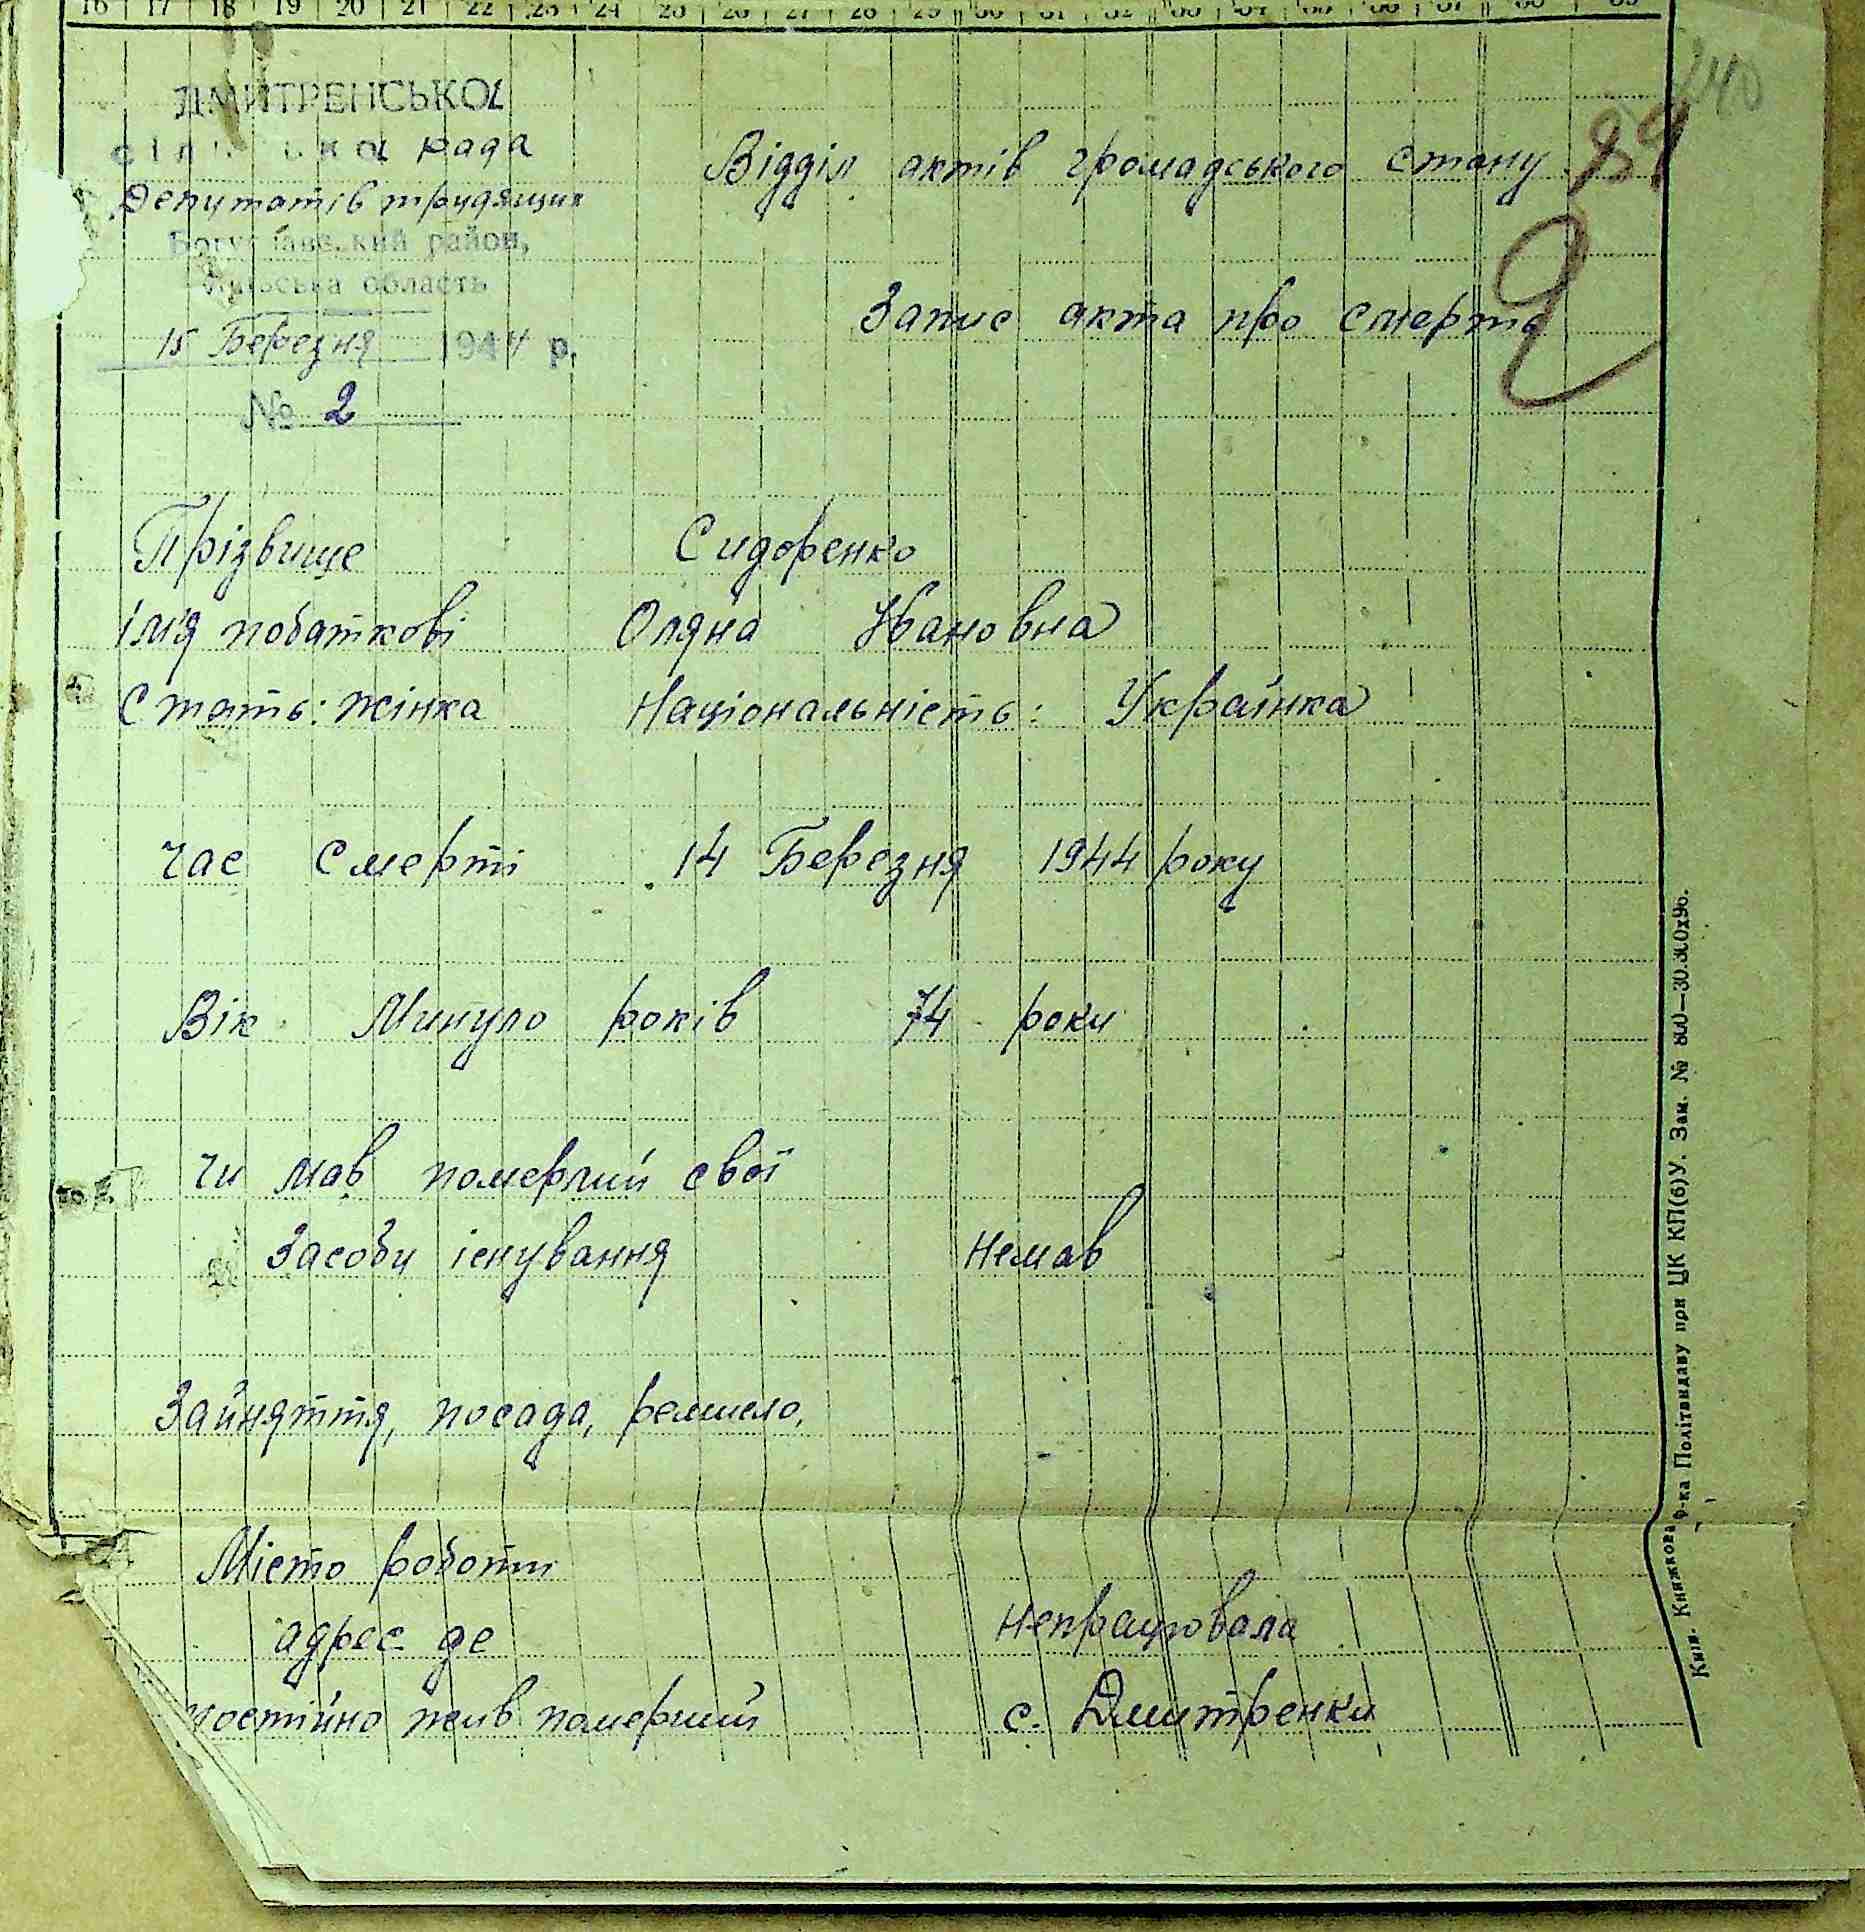 16 17 18 19 20 21 22 23 24 25 26 27 28 29 30 31 32 33 34 35 36 37 38 39
240
ДМИТРЕНСЬКОЇ
рада
Депутатів трудящих
Богуславський район,
Київська область
15 Березня 1944 р.
№ 2
89
Відділ актів громадського стану
Запис акта про смерть
2
Прізвище Сидоренко
ім'я побаткові Оляна Івановна
Стать: жінка Національність: Українка
час смерті 14 Березня 1944 року
Вік Минуло років 74 роки
чи мав померлий свої
Засоби існування немав
Зайняття, посада, ремисло,
Місто роботи
адрес де непрацювала
постійно жив померший с. Дмитренки
Київ. Книжкова ф-ка Політвидаву при ЦК КП(б)У. Зам. № 800—30.300х96.